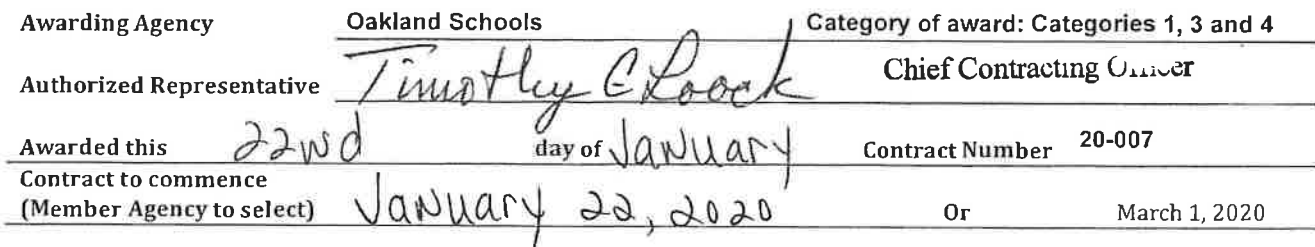 Awarding Agency Oakland Schools Category of award: Categories 1, 3 and 4
Authorized Representative Timothy E Loock Chief Contracting Officer
Awarded this 22nd day of January Contract Number 20-007
Contract to commence
(Member Agency to select) January 22, 2020 Or March 1, 2020